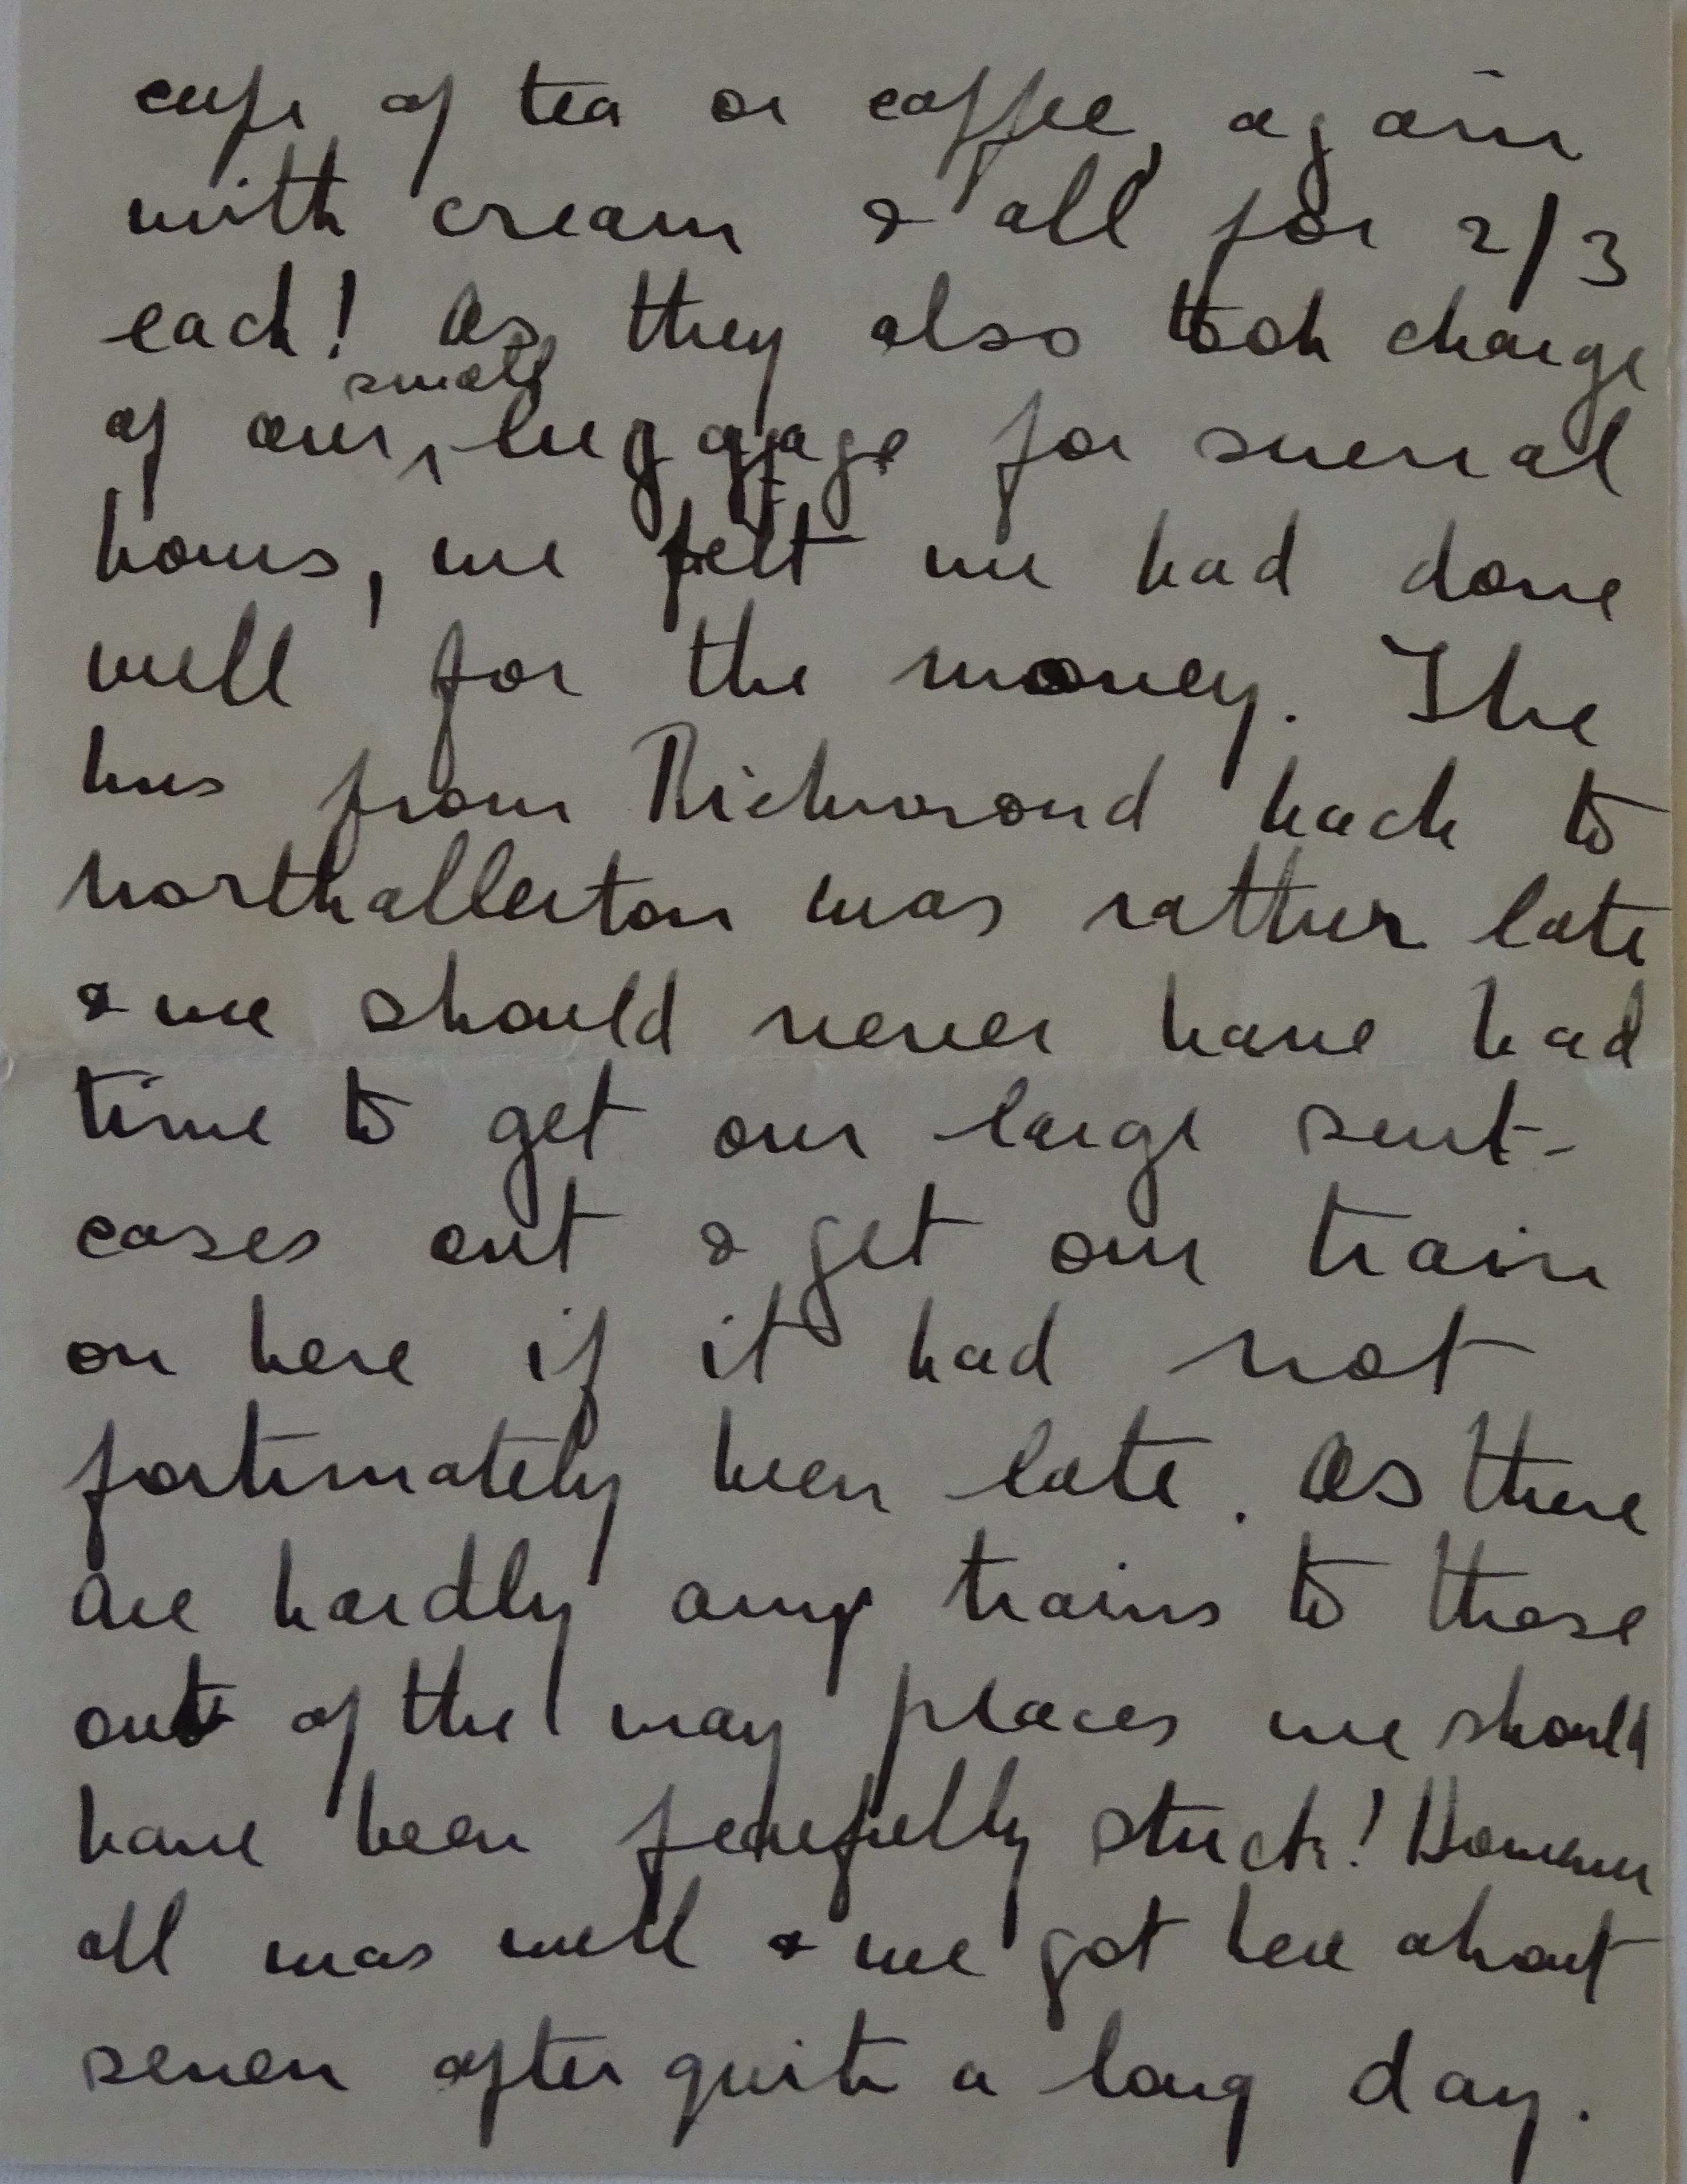 cup of tea or coffee, again
with cream & all for 2/3
each! As they also took charge
small
of our luggage for several
hours, we felt we had done
well for the money. The
bus from Richmond back to
Northallerton was rather late
& we should never have had
time to get our large suit-
cases out & get our train
on here if it had not
fortunately been late. As there
are hardly any trains to these
out of the way places we should
have been fearfully stuck! However
all was well & we got here about
seven after quite a long day.